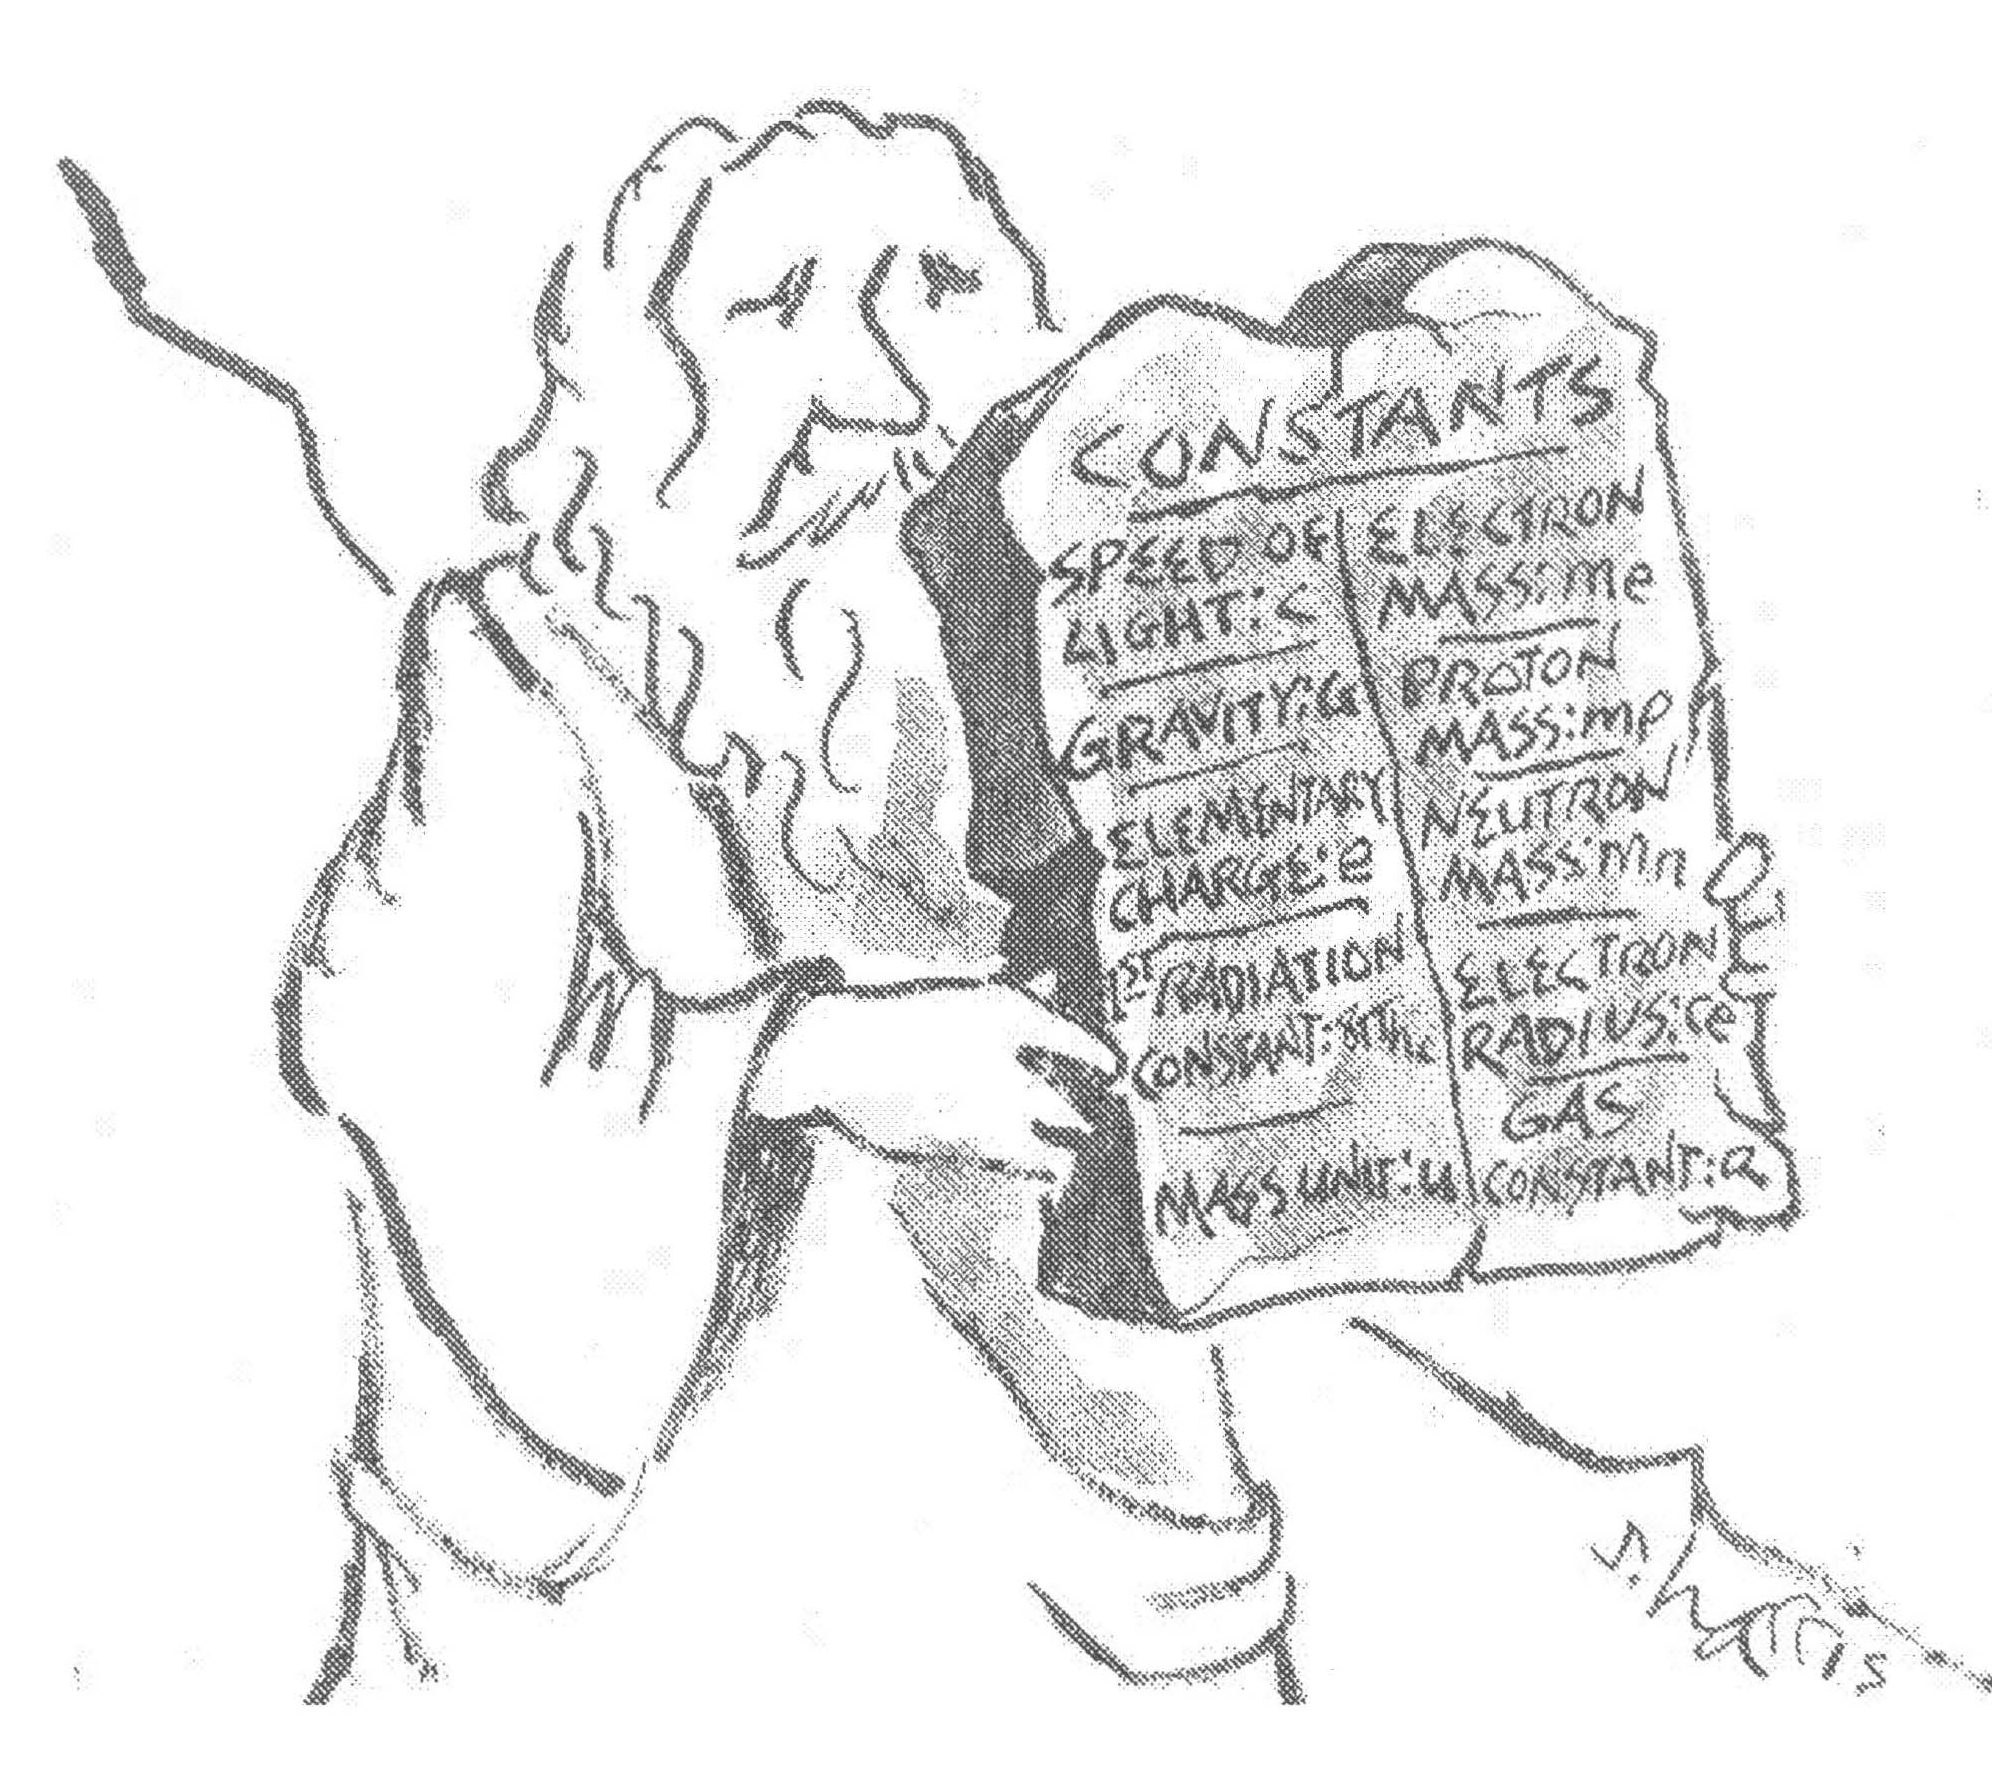 CONSTANTS
SPEED OF
LIGHT: c
GRAVITY: G
ELEMENTARY
CHARGE: e
1ST RADIATION
CONSTANT: 8πhc
MASS UNIT: u
ELECTRON
MASS: me
PROTON
MASS: mp
NEUTRON
MASS: mn
ELECTRON
RADIUS: re
GAS
CONSTANT: R
S. Harris